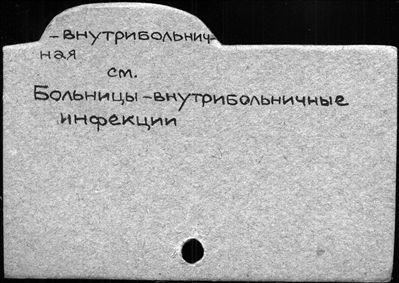 -внутрибольнич-
ная
см.
Больницы-внутрибольничные
инфекции